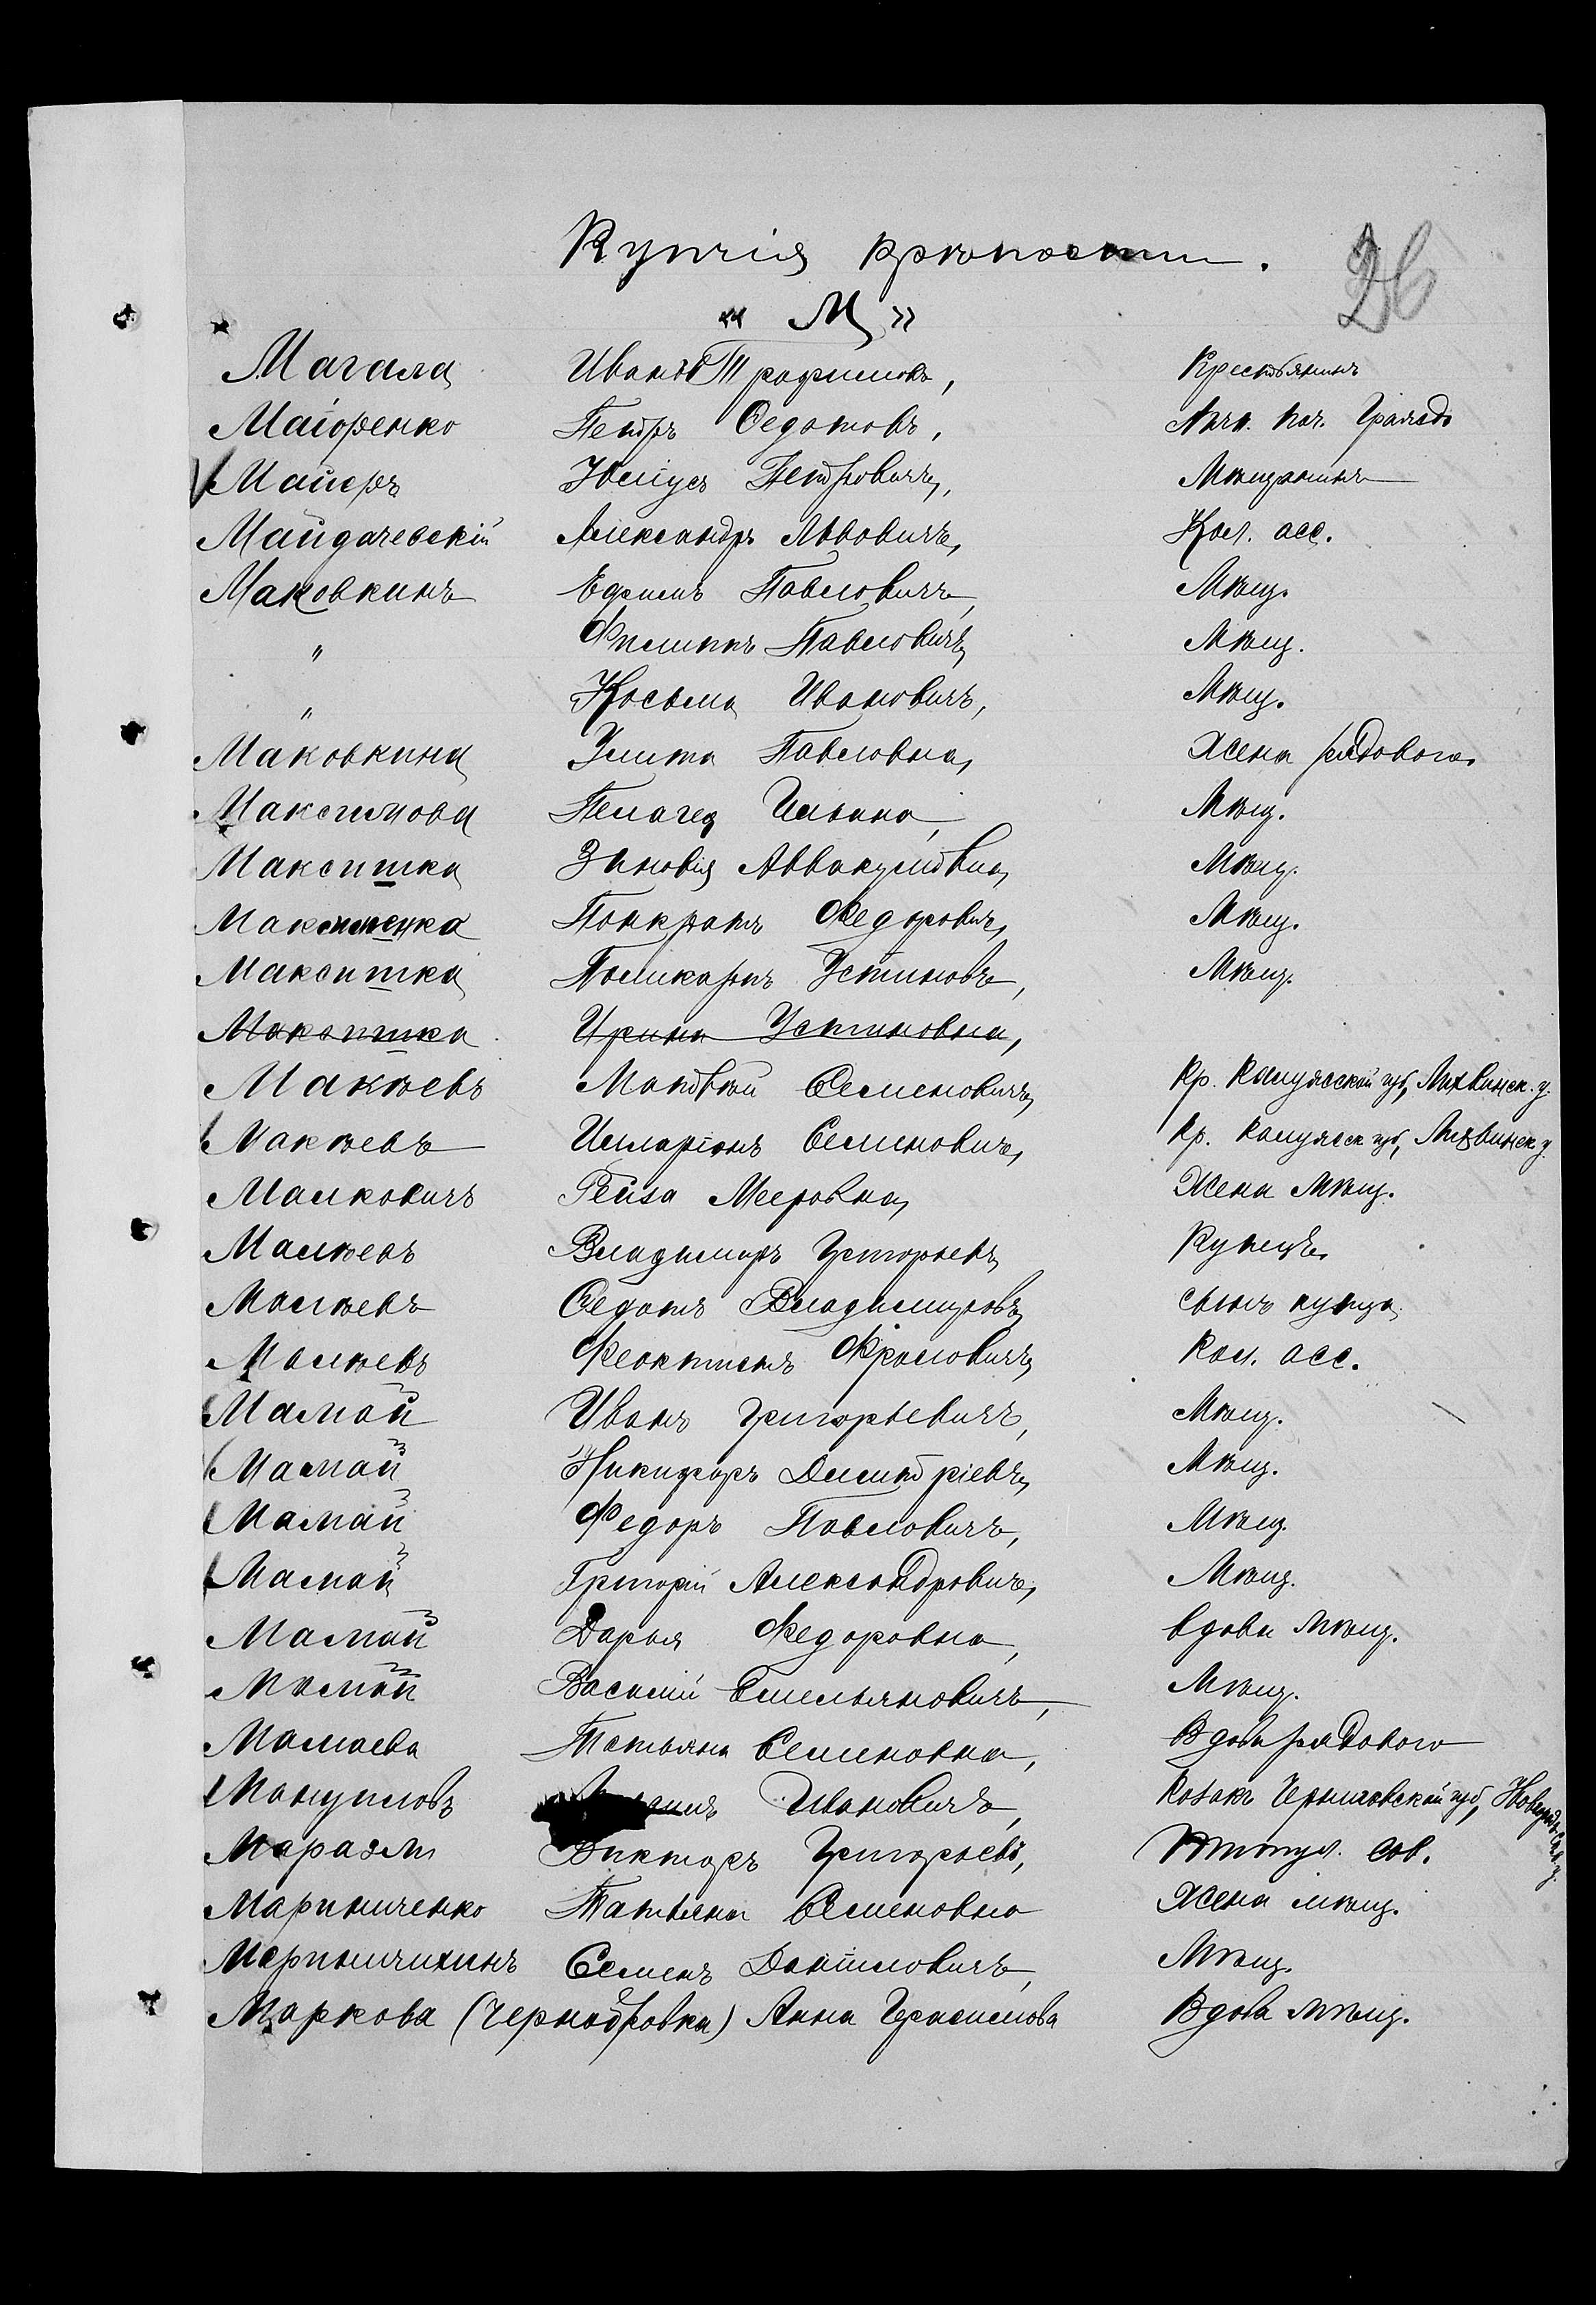 Купчія крѣпости.
26
« М »
Магала Иванъ Трофимовъ, Крестьянинъ
Маіоренко Петръ Федотовъ, Личн. поч. гражд.
Майеръ Юліусъ Петровичъ, Мѣщанинъ
Майдачевскій Александръ Львовичъ, Кол. асс.
Маковкинъ Ефимъ Павловичъ, Мѣщ.
" Филиппъ Павловичъ, Мѣщ.
" Косьма Ивановичъ, Мѣщ.
Маковкина Улита Павловна, Жена рядового.
Максимова Пелагея Ильина, Мѣщ.
Макситка Зиновія Аввакумовна, Мѣщ.
Максименка Панкратъ Федоровичъ, Мѣщ.
Макситка Поликарпъ Устиновъ, Мѣщ.
Макситка Ирина Устиновна,
Макѣевъ Матвѣй Семеновичъ, Кр. Калужской губ, Лихвинск. у.
Макѣевъ Илларіонъ Семеновичъ, Кр. Калужск губ, Лихвинск у.
Малковичъ Рейза Мееровна, Жена мѣщ.
Малѣевъ Владимиръ Григорьевъ, Купецъ.
Малѣевъ Федотъ Владимировъ, сынъ купца.
Малѣевъ Феоктистъ Фроловичъ, Кол. асс.
Мамай Иванъ Григорьевичъ, Мѣщ.
Мамай Никифоръ Димитріевъ, Мѣщ.
Мамай Федоръ Павловичъ, Мѣщ.
Мамай Григорій Александровичъ, Мѣщ.
Мамай Дарья Федоровна, вдова мѣщ.
Мамай Василій Емельяновичъ, Мѣщ.
Мамаева Татьяна Семеновна, Вдова рядового
Мануиловъ Ивановичъ, Козакъ Черниговской губ,
Маразли Викторъ Григорьевъ, Титул. сов.
Мариниченко Татьяна Семеновна Жена мѣщ.
Мариничихинъ Семенъ Даніиловичъ, Мѣщ.
Маркова (Чернобровка) Анна Герасимова Вдова мѣщ.